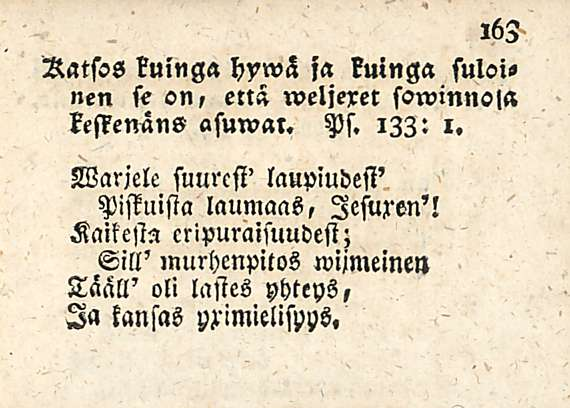 163
Katsos kuinga hywä ja kuinga suloi-
nen se on, että weljexet sowinnosa
keskenäns asuwat. Ps. 133: 1.
Warjele suurest' laupiudest'
Piskuista laumaas, Jesuxen'!
Kaikesta eripuraisuudest;
Sill' murhenpitos wiimeinen
Tääll' oli lastes yhteys,
Ja kansas yximielisyys.